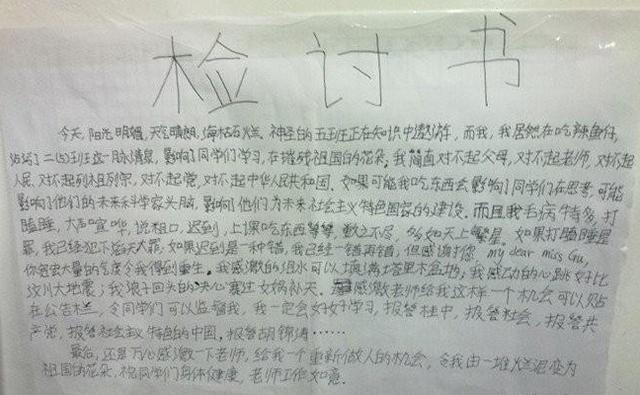 检讨书
今天,阳光明媚,天气晴朗,海枯石烂,神圣的五班正在知识中遨游,而我,我居然在吃辣鱼仔,
沾污了二(5)班这一脉清泉,影响了同学们学习,在摧残祖国的花朵,我简直对不起父母,对不起老师,对不起
人民,对不起列祖列宗,对不起党,对不起中华人民共和国.如果可能我吃东西会影响了同学们在思考,可能
影响了他们的未来科学家头脑,影响他们为未来社会主义特色国家的建设.而且我毛病特多,打
瞌睡,大声喧哗,说粗口,迟到,上课吃东西等等,数之不尽,多如天上繁星.如果打瞌睡是
罪,我已经犯下滔天大罪,如果迟到是一种错,我已经一错再错,但感谢您, my dear miss Gu,
你宽宏大量的气度令我得到重生,我感激的泪水可以填满塔里木盆地,我感动的心跳好比
汶川大地震,我浪子回头的决心赛过女娲补天.感激老师给我这样一个机会可以贴
在公告栏,令同学们可以监督我,我一定会好好学习,报答桂中,报答社会,报答共
产党,报答社会主义特色的中国,报答胡锦涛……
最后,还是万心感激一下老师,给我一个重新做人的机会,令我由一堆烂泥变为
祖国的花朵,祝同学们身体健康,老师工作如意.